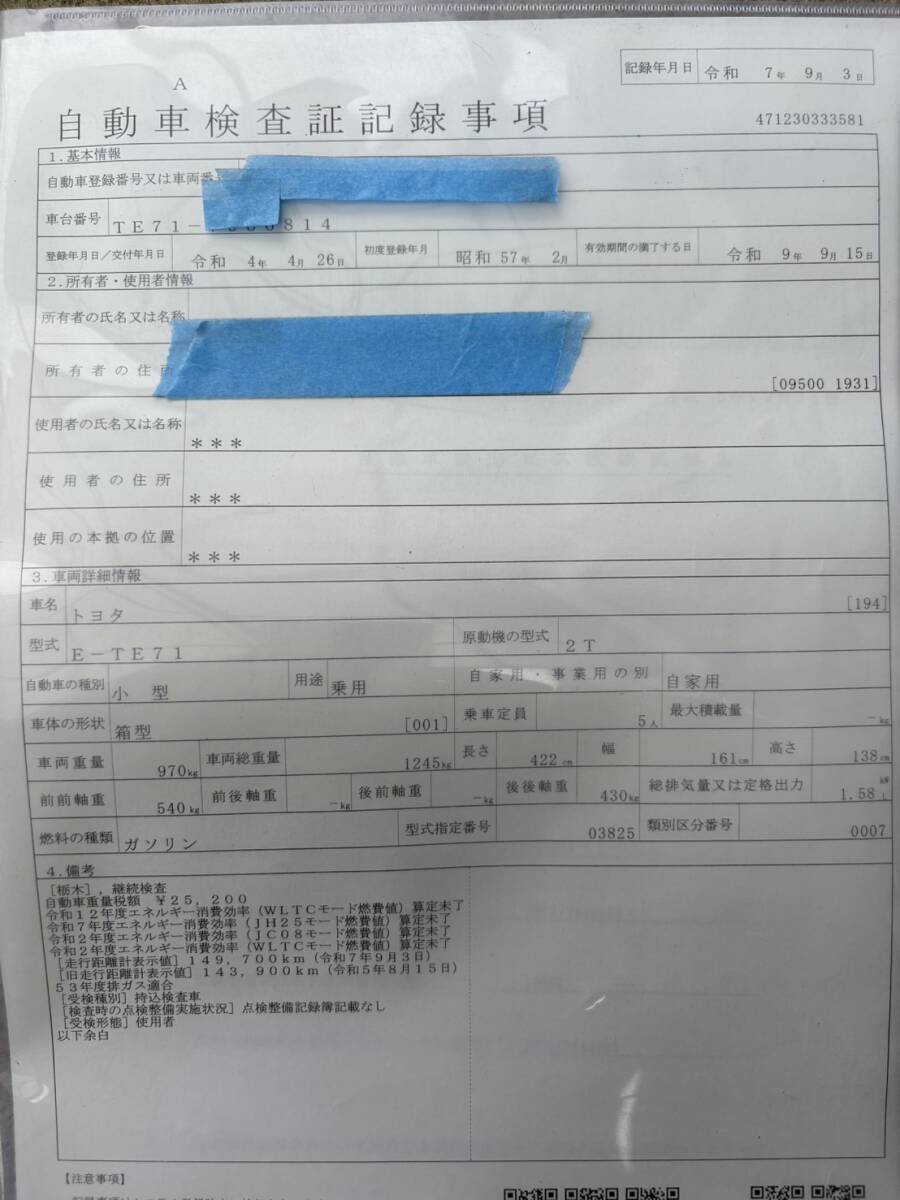 記録年月日 令和 7年 9月 3日
A
自動車検査証記録事項
471230333581
1.基本情報
自動車登録番号又は車両番号
車台番号 TE71-
814
登録年月日/交付年月日 令和 4年 4月 26日 初度登録年月 昭和 57年 2月 有効期間の満了する日 令和 9年 9月 15日
2.所有者・使用者情報
所有者の氏名又は名称
所有者の住所
[09500 1931]
使用者の氏名又は名称 ***
使用者の住所 ***
使用の本拠の位置 ***
3.車両詳細情報
車名 トヨタ [194]
型式 E-TE71 原動機の型式 2T
自動車の種別 小 型 用途 乗用 自家用・事業用の別 自家用
車体の形状 箱型 [001] 乗車定員 5人 最大積載量 -kg
車両重量 970kg 車両総重量 1245kg 長さ 422cm 幅 161cm 高さ 138cm
前前軸重 540kg 前後軸重 -kg 後前軸重 -kg 後後軸重 430kg 総排気量又は定格出力 1.58 kW L
燃料の種類 ガソリン 型式指定番号 03825 類別区分番号 0007
4.備考
[栃木],継続検査
自動車重量税額 ¥25,200
令和12年度エネルギー消費効率(WLTCモード燃費値)算定未了
令和7年度エネルギー消費効率(JH25モード燃費値)算定未了
令和2年度エネルギー消費効率(JC08モード燃費値)算定未了
令和2年度エネルギー消費効率(WLTCモード燃費値)算定未了
[走行距離計表示値]149,700km(令和7年9月3日)
[旧走行距離計表示値]143,900km(令和5年8月15日)
53年度排ガス適合
[受検種別]持込検査車
[検査時の点検整備実施状況]点検整備記録簿記載なし
[受検形態]使用者
以下余白
【注意事項】